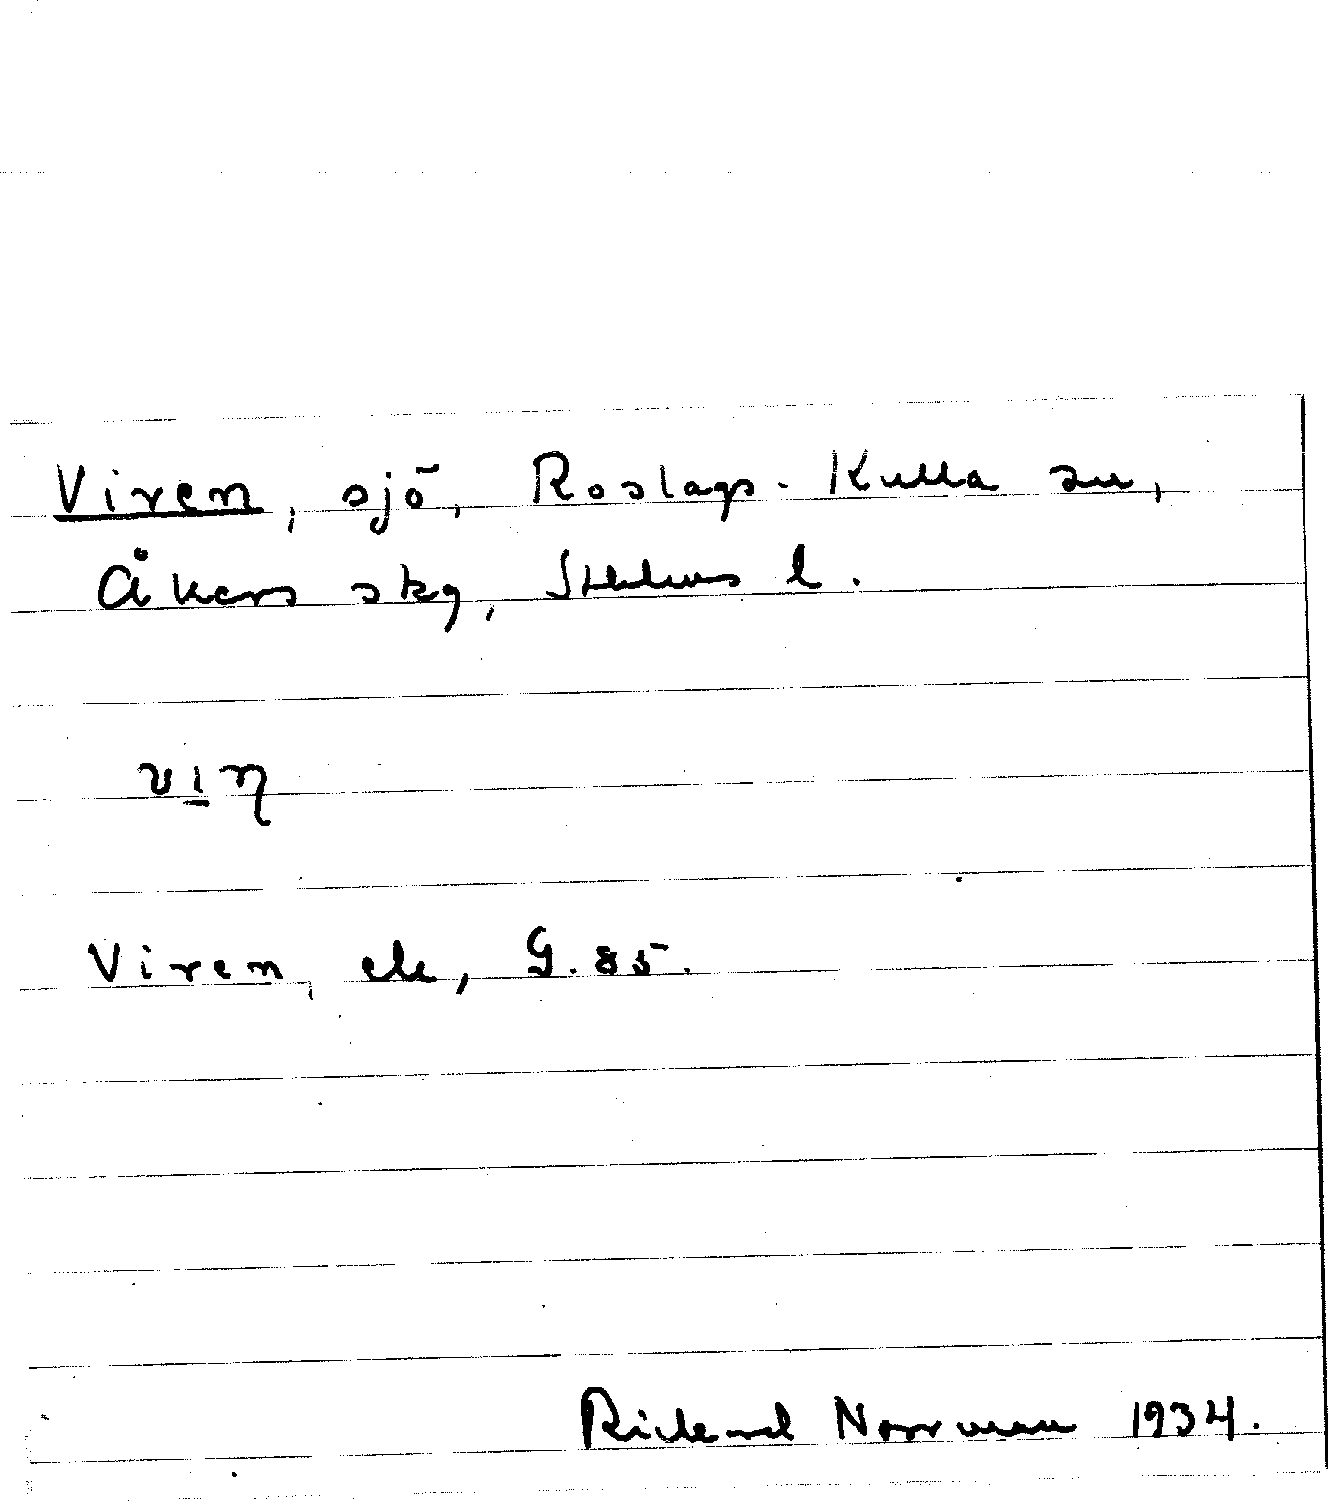 Viren, sjö, Roslags-Kulla sn,
Åkers skg, Sthlms l.
Viren, ek, G. 85.
Rickard Norrman 1934.